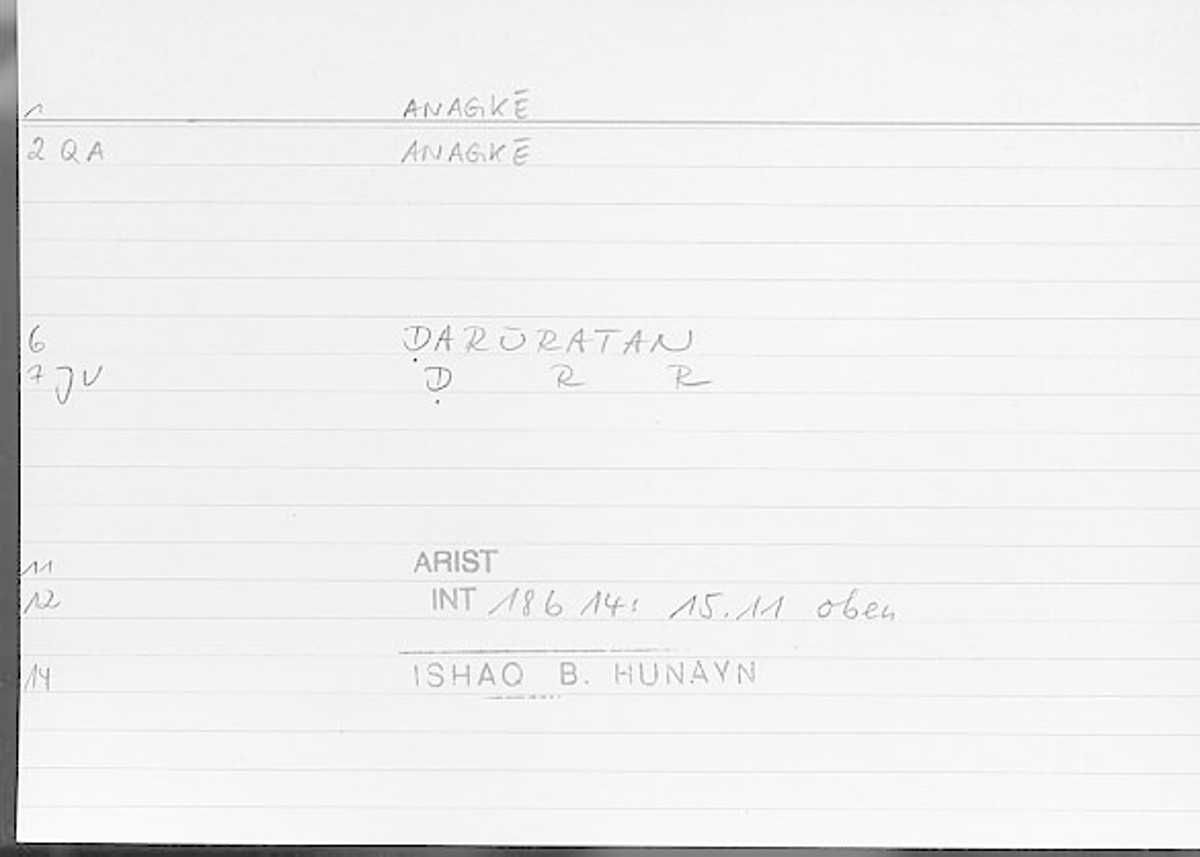 1 ANAGKĒ
2 QA ANAGKĒ
6 ḌARŪRATAN
7 JV Ḍ R R
11 ARIST
12 INT 18b 14: 15.11 oben
14 ISHAQ B. HUNAYN